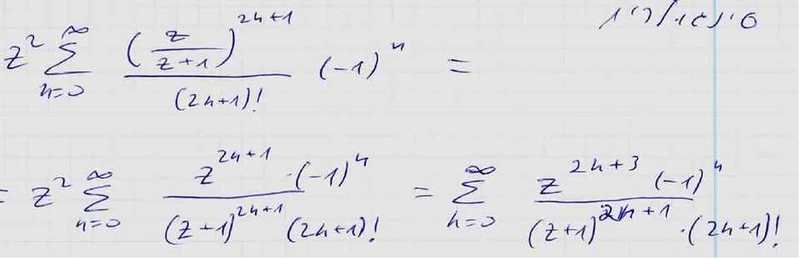 z^2 \sum_{n=0}^{\infty} \frac{(\frac{z}{z+1})^{2n+1}}{(2n+1)!} (-1)^n =
= z^2 \sum_{n=0}^{\infty} \frac{z^{2n+1} \cdot (-1)^n}{(z+1)^{2n+1} (2n+1)!} = \sum_{n=0}^{\infty} \frac{z^{2n+3} (-1)^n}{(z+1)^{2n+1} \cdot (2n+1)!}